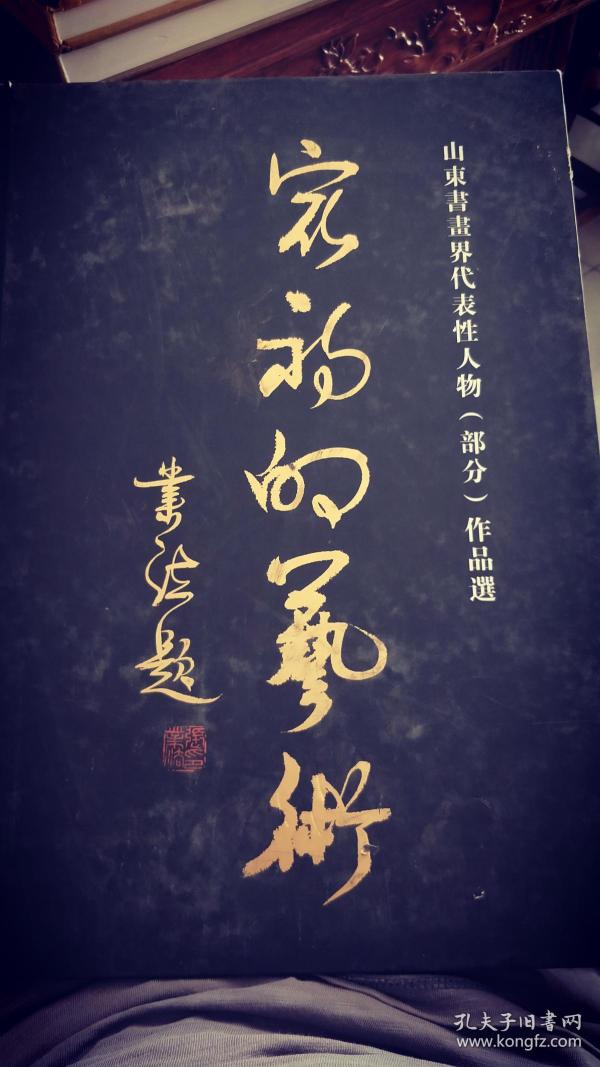 山東書畫界代表性人物（部分）作品選
的藝術
業法題
孔夫子旧書网
www.kongfz.com